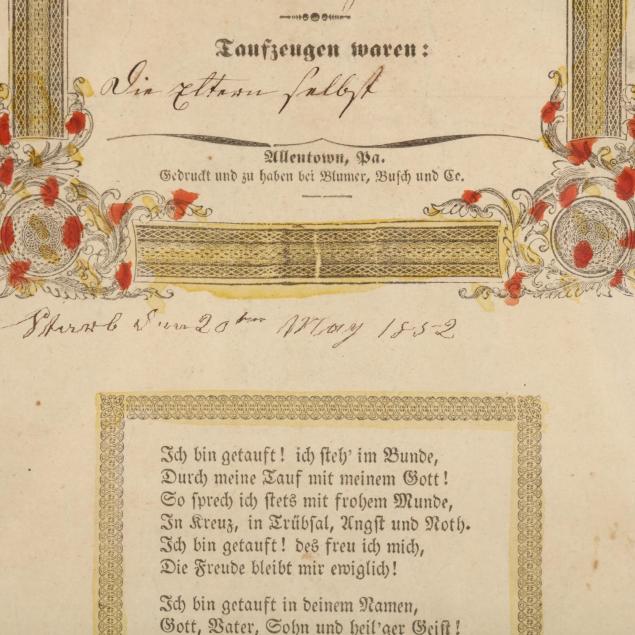 Taufzeugen waren:
Die Eltern selbst
Allentown, Pa.
Gedruckt und zu haben bei Blumer, Busch und Co.
Starb den 20ten May 1852
Ich bin getauft! ich steh' im Bunde,
Durch meine Tauf mit meinem Gott!
So sprech ich stets mit frohem Munde,
In Kreuz, in Trübsal, Angst und Noth.
Ich bin getauft! des freu ich mich,
Die Freude bleibt mir ewiglich!
Ich bin getauft in deinem Namen,
Gott, Vater, Sohn und heil'ger Geist!